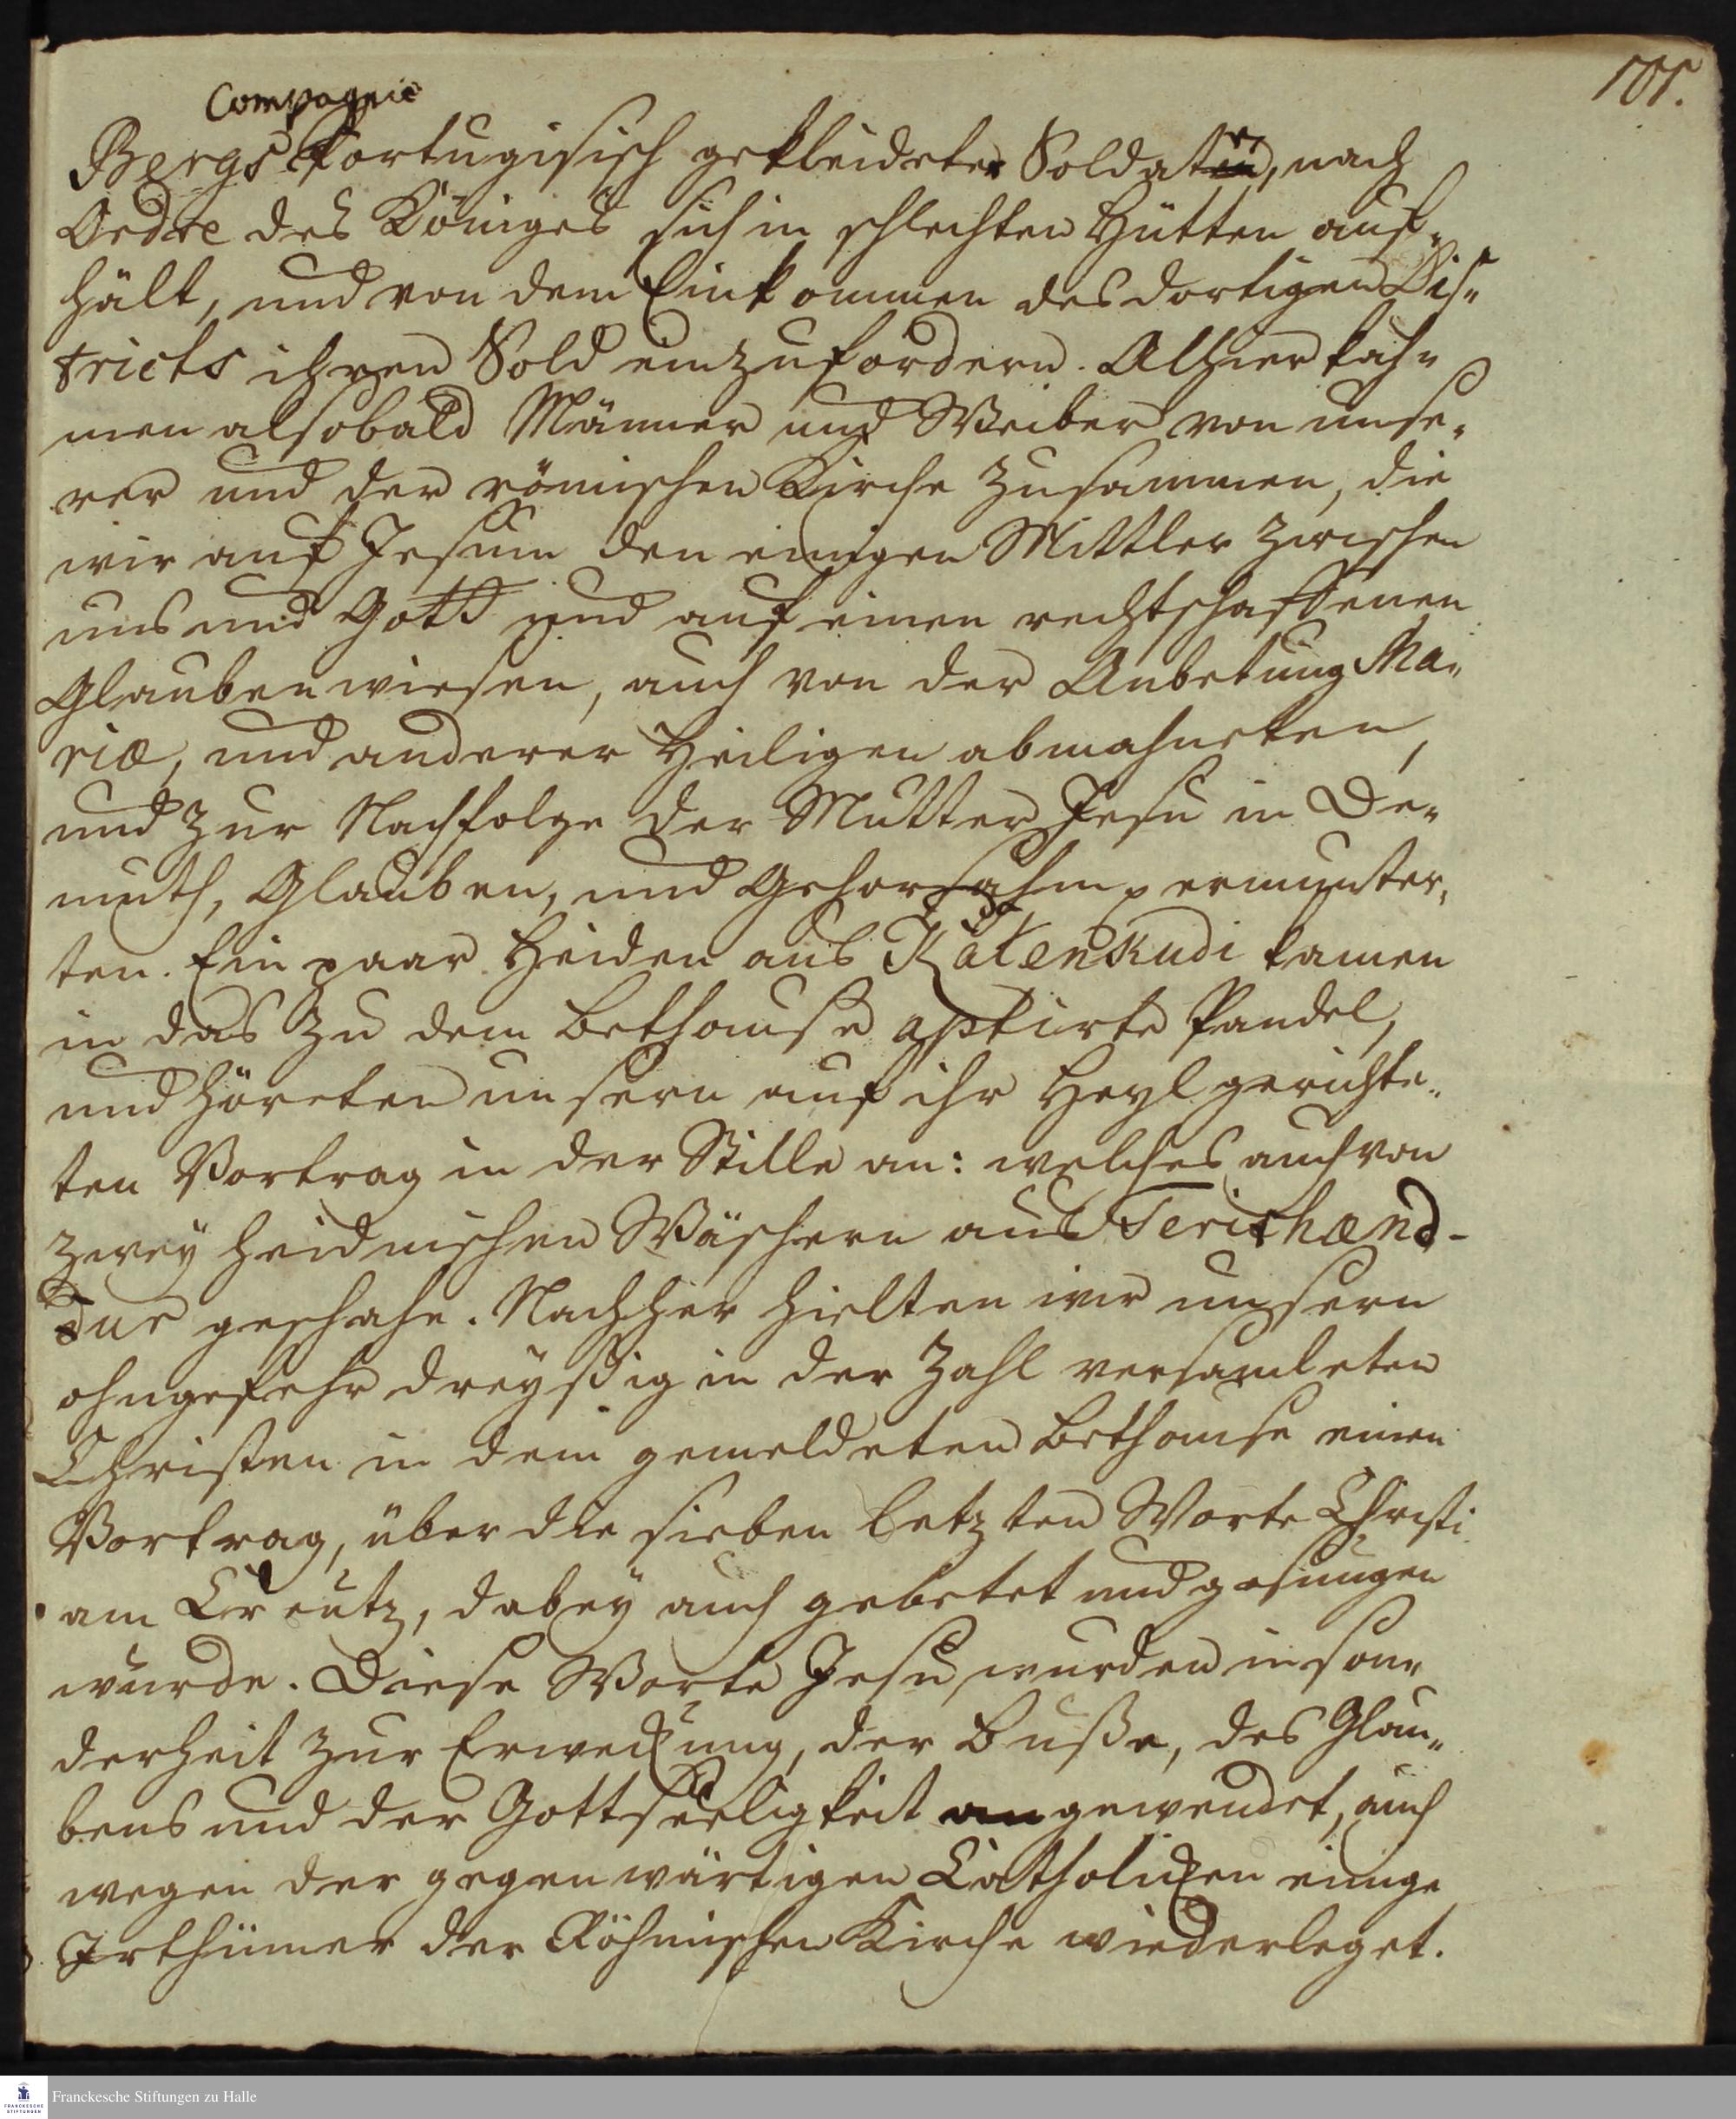 101.
Compagnie
Bergs Portugisisch gekleideter Soldaten, nach
Ordre des Königes sich in schlechten Hütten auf-
hält, und von dem Einkommen des dortigen Dis-
tricts ihren Sold einzufordern. Alhier kah-
men alsobald Männer und Weiber von unse-
rer und der römischen Kirche zusammen, die
wir auf Jesum den einigen Mittler zwischen
uns und Gott und auf einen rechtschaffenen
Glauben wiesen, auch von der Anbetung Ma-
riæ, und anderer Heiligen abmahneten,
und zur Nachfolge der Mutter Jesu in De-
muth, Glauben, und Gehorsahm ermunter-
ten. Ein paar Heiden aus Katenkudi kamen
in das zu dem Bethause aptirte Pandel,
und höreten unsern auf ihr Heyl gerichte-
ten Vortrag in der Stille an: welches auch von
zwey heidnischen Wäschern aus Terishænd-
dur geschahe. Nachher hielten wir unsern
ohngefehr dreyßig in der Zahl versamleten
Christen in dem gemeldeten Bethause einen
Vortrag, über die sieben letzten Worte Christi
am Creutz, dabey auch gebetet und gesungen
wurde. Diese Worte Jesu wurden inson-
derheit zur Erweckung, der Buße, des Glau-
bens und der Gottseeligkeit angewendet, auch
wegen der gegenwärtigen Catholicken einige
Irthümer der Röhmischen Kirche wiederleget.
FRANCKESCHE
STIFTUNGEN
Franckesche Stiftungen zu Halle